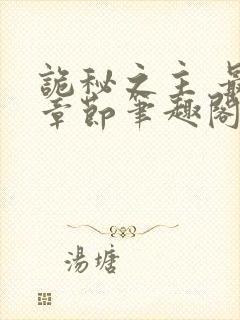 詭秘之主 最
章節筆趣閣
湯塘